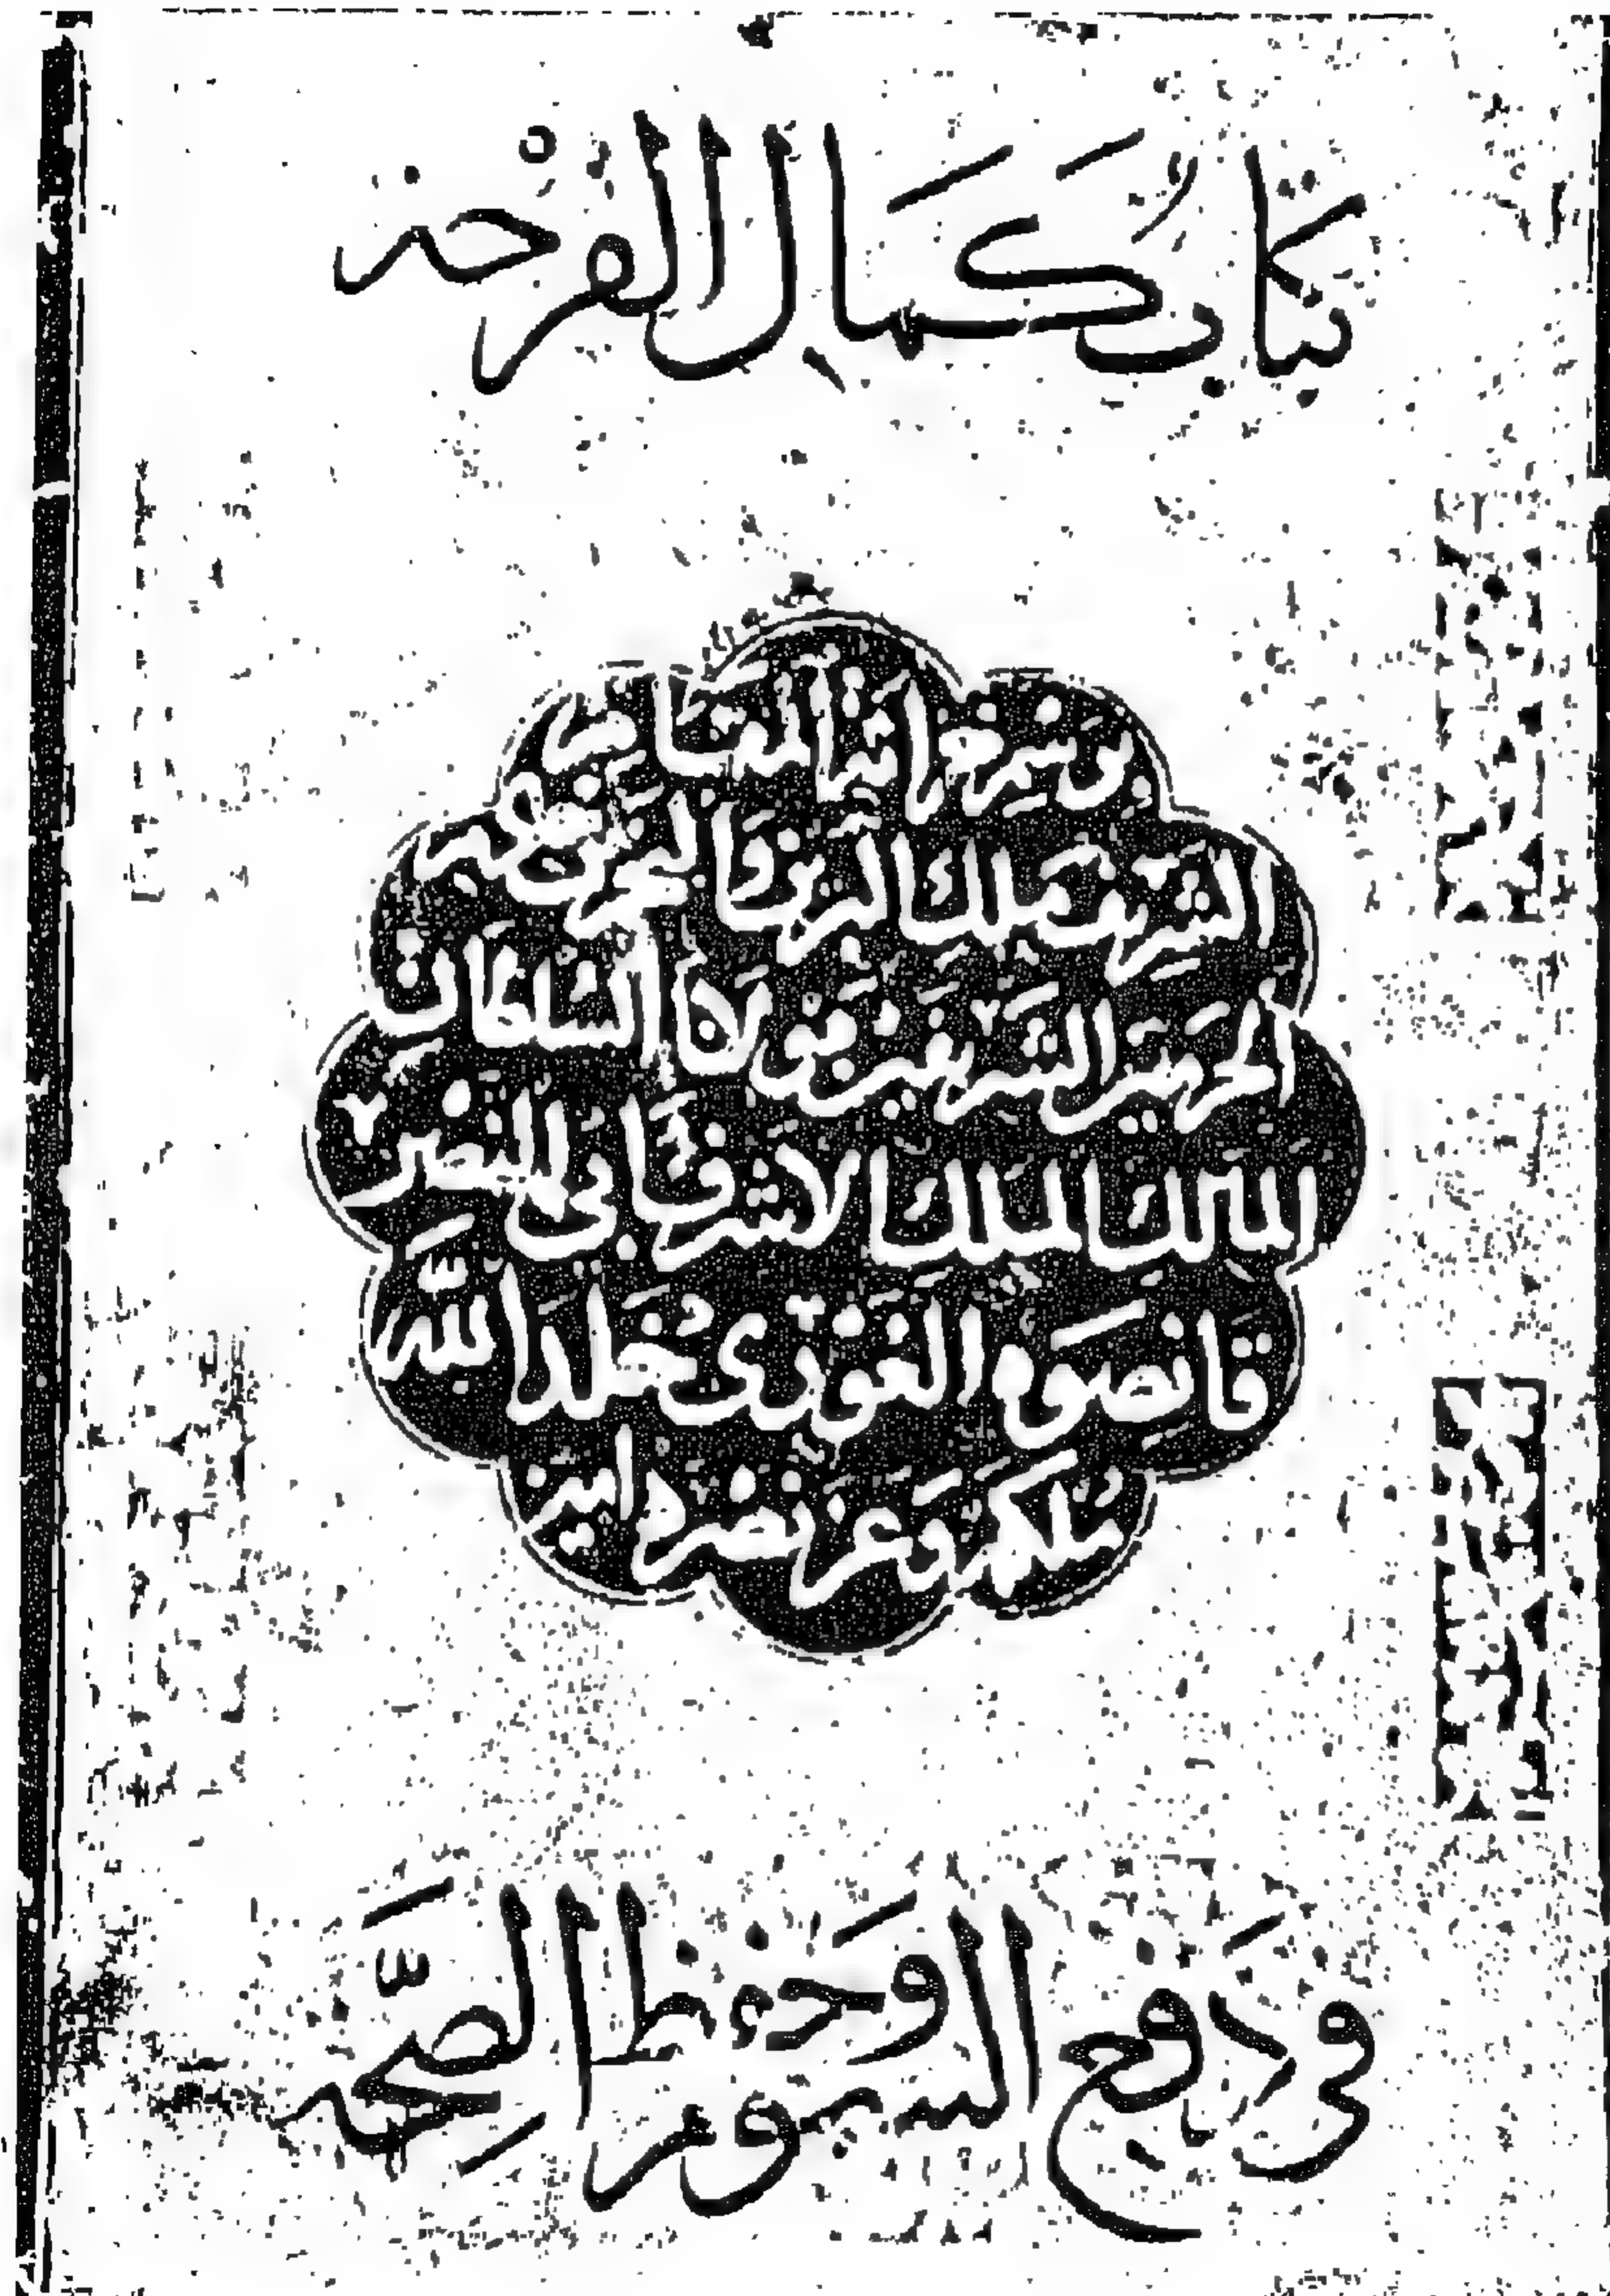 كتاب كمال الفرحه
برسم خزانة المقام
الشريف ملك البرين والبحرين
الحرمين الشريفين مولانا السلطان
المالك الملك الاشرف ابى النصر
قانصوه الغورى خلد الله
ملكه وعز نصره امين
فى دفع السموم وحفظ الصحه